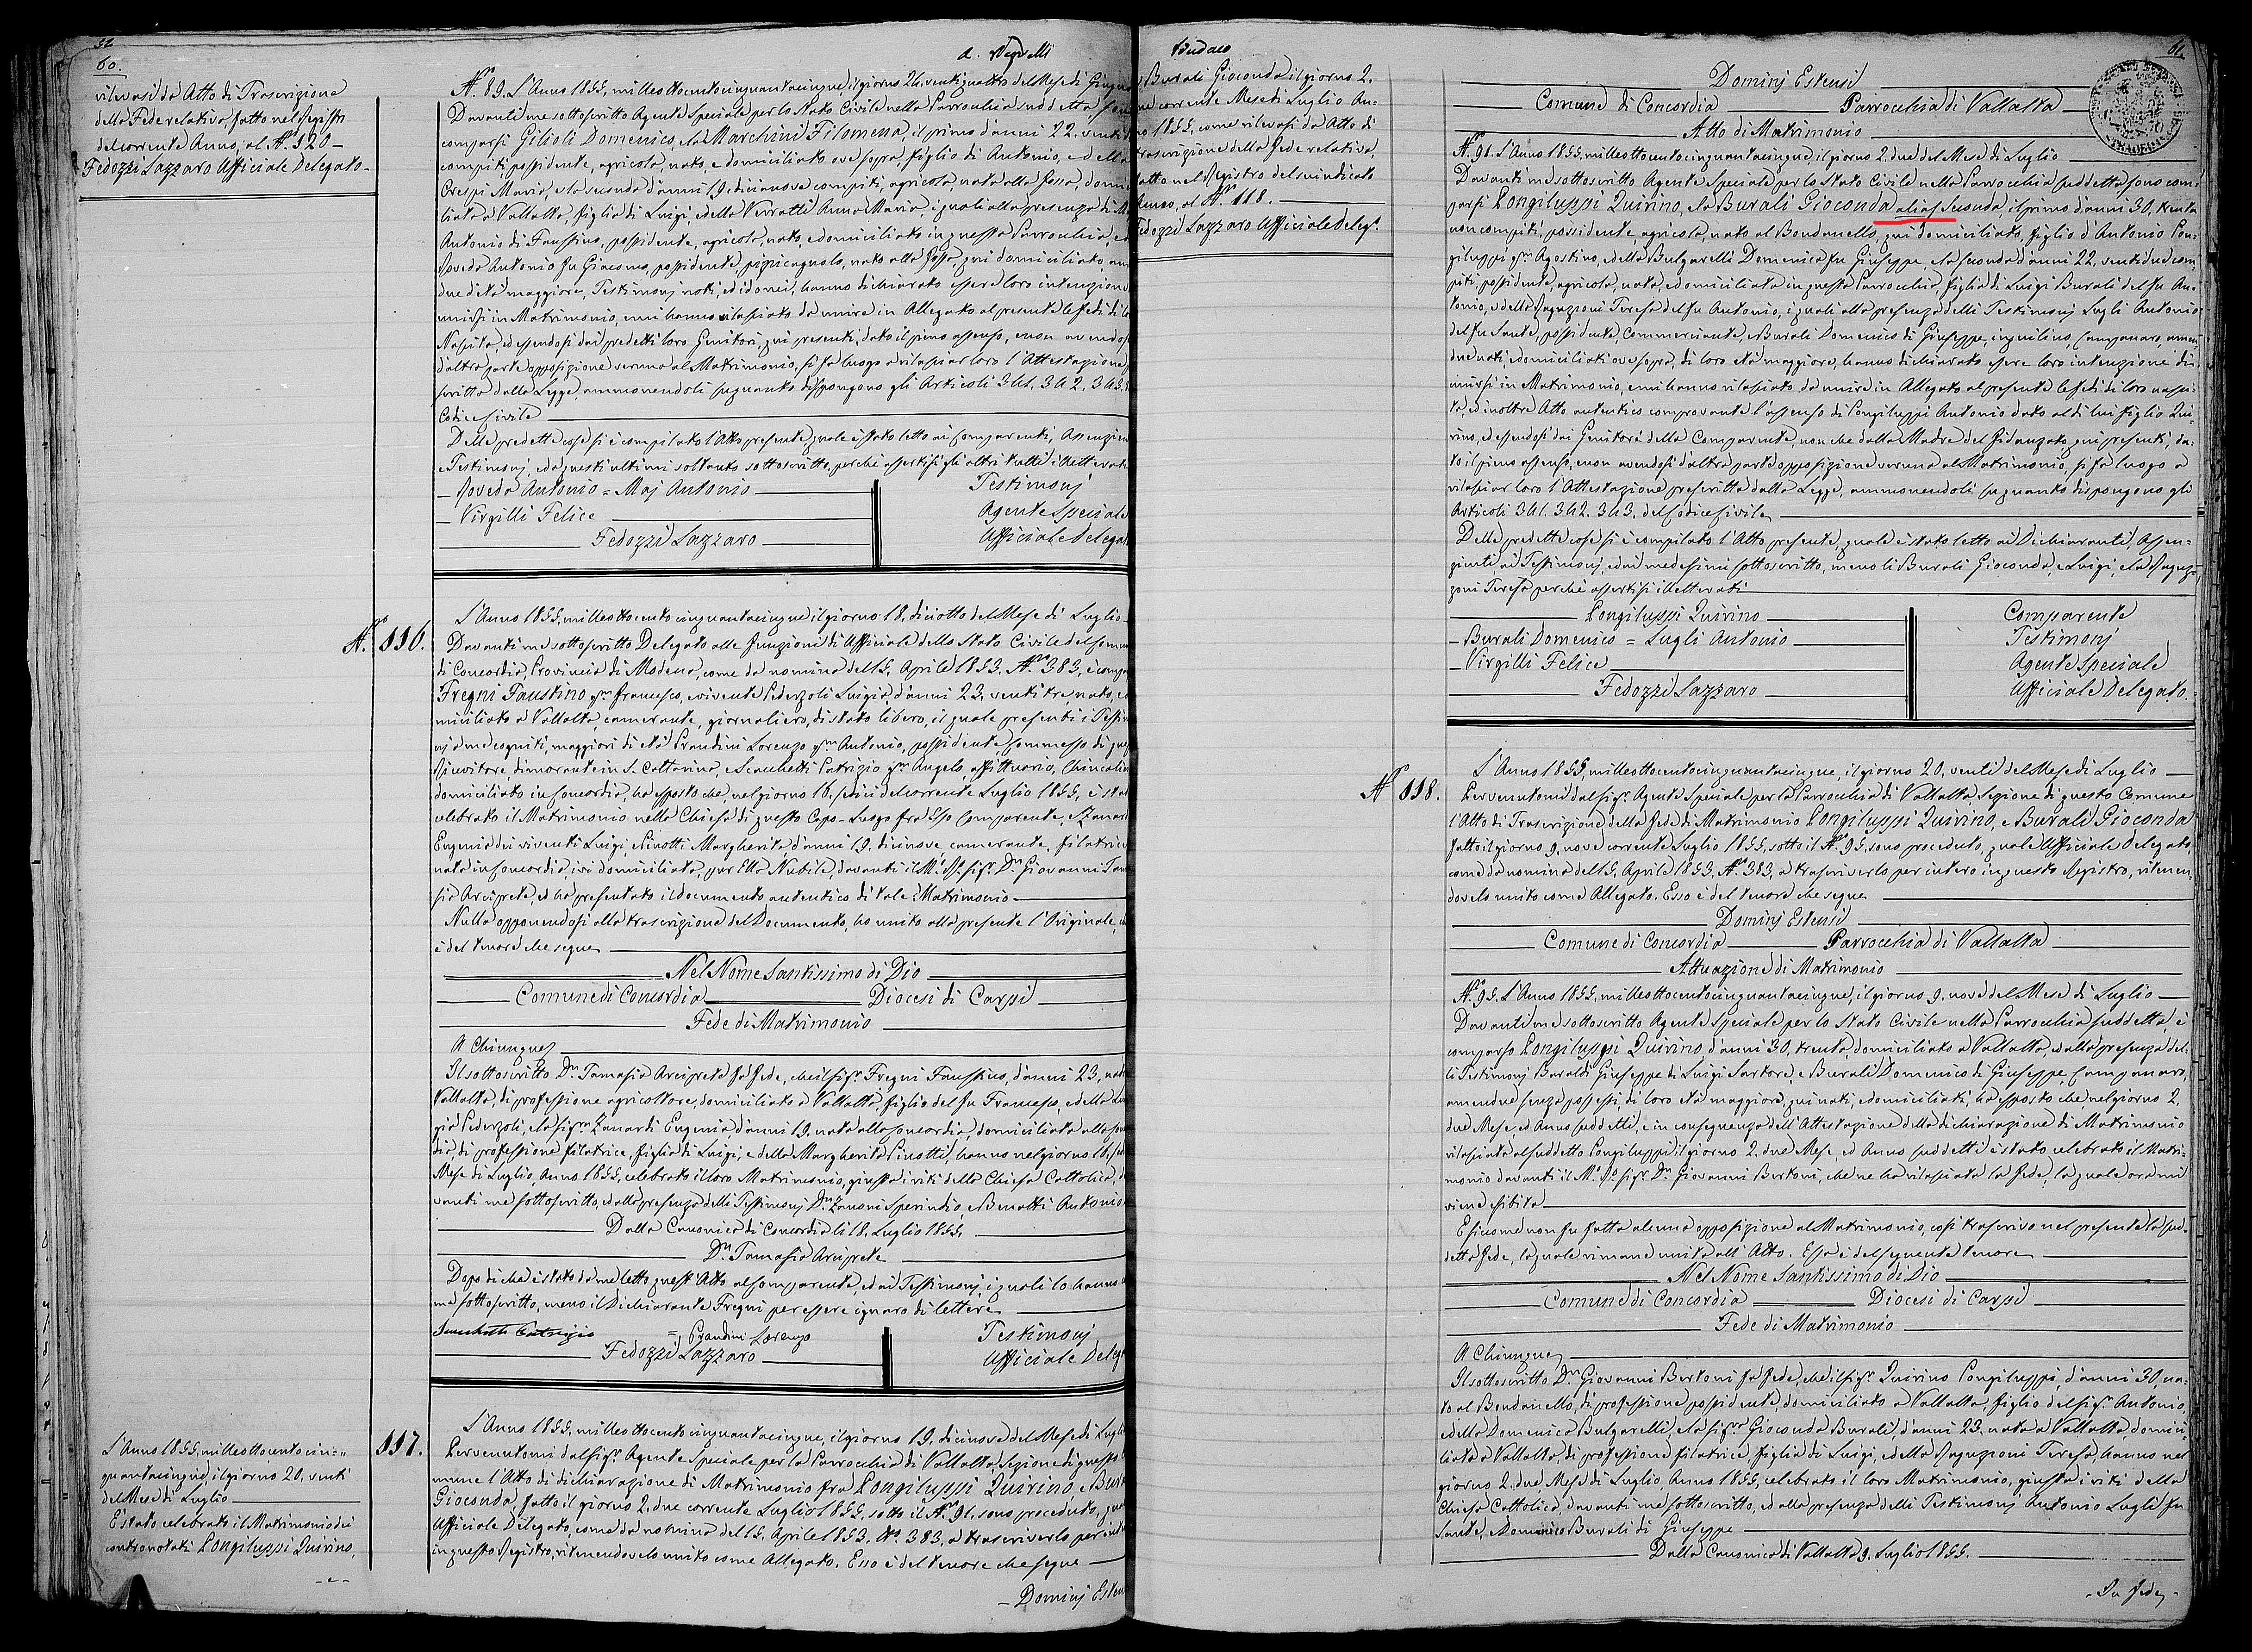 60.
rilevasi da Atto di Trascrizione
della Fede relativa, fatto nel Registro
del corrente Anno, al N.º 120 -
Fedozzi Lazzaro Ufficiale Delegato -
L'Anno 1855, mille ottocento cin-
quantacinque, il giorno 20, venti
del Mese di Luglio
È stato celebrato il Matrimonio dei
contronotati Longiluppi Quirino,
N.º 89. L'Anno 1855, mille ottocento cinquantacinque, il giorno 24, ventiquattro del Mese di Giugno
Davanti me sottoscritto Agente Speciale per lo Stato Civile nella Parrocchia suddetta, sono
comparsi Gilioli Domenico, e la Marchini Filomena, il primo d'anni 22, venti
compiti, possidente, agricola, nato, e domiciliato ove sopra, figlio di Antonio, e della
Crespi Maria, e la seconda d'anni 19, diciannove compiti, agricola, nata alla Fossa, domi
liata a Vallalta, figlia di Luigi, e della Verratti Anna Maria, i quali alla presenza di
Antonio di Faustino, possidente, agricola, nato, e domiciliato in questa Parrocchia, e
Roveda Antonio fu Giacomo, possidente, pizzicagnolo, nato alla Fossa, qui domiciliato, am
due d'età maggiore, Testimonj noti, ed idonei, hanno dichiarato essere loro intenzione
unirsi in Matrimonio, e mi hanno rilasciato da unire in Allegato al presente le fedi di
Nascita, ed essendosi dai predetti loro Genitori, qui presenti, dato il pieno assenso, e non avendosi
d'altra parte opposizione veruna al Matrimonio, si fa luogo a rilasciar loro l'Attestazione
scritta dalla Legge, ammonendoli su quanto dispongono gli Articoli 341. 342. 343.
Codice Civile
Delle predette cose si è compilato l'Atto presente, quale è stato letto ai Comparenti, Assenzienti
e Testimonj, e da questi ultimi soltanto sottoscritto, perchè assertisi gli altri tutti illetterati
- Roveda Antonio = Maj Antonio Testimonj
- Virgilli Felice Agente Speciale
Fedozzi Lazzaro Ufficiale Delegat
N.º 116.
L'Anno 1855, mille ottocento cinquantacinque il giorno 18, diciotto del Mese di Luglio
Davanti me sottoscritto Delegato alle funzioni di Ufficiale dello Stato Civile del Comun
di Concordia, Provincia di Modena, come da nomina del 15. Aprile 1853. N.º 383, è compa
Fregni Faustino q.m Francesco, e vivente Pederzoli Luigia, d'anni 23, venti tre, nato, e
miciliato a Vallalta, camerante, giornaliero, di stato libero, il quale presenti i Testi
nj a me cogniti, maggiori di età Prandini Lorenzo q.m Antonio, possidente, Commesso di
Ricevitore, dimorante in S. Cattarina, e Sacchetti Patrizio q.m Angelo, affittuario,
domiciliato in Concordia, ha esposto che, nel giorno 16. sedici del corrente Luglio 1855, è stat
celebrato il Matrimonio nella Chiesa di questo Capo-Luogo fra Esso Comparente, e Zanar
Eugenia dei viventi Luigi, e Pinotti Margherita d'anni 19. diciannove, camerante, filatrice
nata in Concordia, ivi domiciliata, pur Essa Nubile, davanti il M.º R.º Sig.r D.n Giovanni Tam
sia Arciprete, ed ha presentato il documento autentico di tale Matrimonio
Nulla opponendosi alla trascrizione del Documento, ho unito alla presente l'Originale, ch
è del tenore che segue
Nel Nome Santissimo di Dio
Comune di Concordia Diocesi di Carpi
Fede di Matrimonio
A Chiunque
Il sottoscritto D.n Tamasia Arciprete fa fede, che il sig.r Fregni Faustino, d'anni 23, nato
Vallalta, di professione agricoltore, domiciliato a Vallalta, figlio del fu Francesco, e della Lui
gia Pederzoli, e la sig.ra Zanardi Eugenia, d'anni 19. nata alla Concordia, domiciliata alla Con
dia, di professione filatrice, figlia di Luigi, e della Margherita Pinotti, hanno nel giorno 16. sed
Mese di Luglio, Anno 1855, celebrato il loro Matrimonio, giusta i riti della Chiesa Cattolica, da
vanti me sottoscritto, ed alla presenza delli Testimonj D.n Zanoni Sperindio, e Benatti Antonio
Dalla Canonica di Concordia li 18. Luglio 1855.
D.n Tamasia Arciprete
Dopo di che è stato da me letto quest'Atto al Comparente, ed ai Testimonj, i quali lo hanno
me sottoscritto, meno il Dichiarante Fregni per essere ignaro di lettere
Sacchetti Patrizio = Prandini Lorenzo Testimonj
Fedozzi Lazzaro Ufficiale Deleg
117.
L'Anno 1855, mille ottocento cinquantacinque, il giorno 19, diciannove del Mese di Lugli
Pervenutomi dal sig.r Agente Speciale per la Parrocchia di Vallalta, Sezione di questo
mune l'Atto di dichiarazione di Matrimonio fra Longiluppi Quirino, e Bura
Gioconda, fatto il giorno 2. due corrente Luglio 1855, sotto il N.º 91. sono proceduto, qua
Ufficiale Delegato, come da nomina del 15. Aprile 1853. N.º 383, a trascriverlo per inte
in questo Registro, ritenendovelo unito come Allegato. Esso è del tenore che segue
- Dominj Esten
Sindaco
Burali Gioconda il giorno 2.
corrente Mese di Luglio An-
no 1855, come rilevasi da Atto di
trascrizione della fede relativa,
fatto nel Registro del suindicato
Anno, al N.º 118.
Fedozzi Lazzaro Ufficiale Deleg.º
61.
Dominj Estensi
Comune di Concordia Parrocchia di Vallalta
Atto di Matrimonio
N.º 91. L'Anno 1855, mille ottocento cinquantacinque, il giorno 2. due del Mese di Luglio
Davanti me sottoscritto Agente Speciale per lo Stato Civile nella Parrocchia suddetta sono com-
parsi Longiluppi Quirino, e la Burali Gioconda alias Seconda, il primo d'anni 30, trenta
non compiti, possidente, agricola, nato al Bondanello, qui domiciliato, figlio d'Antonio Lon-
giluppi q.m Agostino, e della Bulgarelli Domenica fu Giuseppe, e la seconda d'anni 22, ventidue com-
piti, possidente, agricola, nata, e domiciliata in questa Parrocchia, figlia di Luigi Burali del fu An-
tonio, e della Ragazzoni Teresa del fu Antonio, i quali alla presenza delli Testimonj Lugli Antonio
del fu Sante, possidente, Commerciante, e Burali Domenico di Giuseppe, inquilino, Campanaro, amen-
due nati, e domiciliati ove sopra, di loro età maggiore, hanno dichiarato essere loro intenzione di
unirsi in Matrimonio, e mi hanno rilasciato da unire in Allegato al presente le fedi di loro nasci-
ta, ed inoltre Atto autentico comprovante l'assenso di Longiluppi Antonio dato al di lui figlio Qui-
rino, ed essendosi dai Genitori della Comparente, non che dalla Madre del Fidanzato, qui presenti, da-
to il pieno assenso, e non avendosi d'altra parte opposizione veruna al Matrimonio, si fa luogo a
rilasciar loro l'Attestazione prescritta dalla Legge, ammonendoli su quanto dispongono gli
Articoli 341. 342. 343. del Codice Civile
Delle predette cose si è compilato l'Atto presente, quale è stato letto ai Dichiaranti, Assen-
zienti, ai Testimonj, e dai medesimi sottoscritto, meno li Burali Gioconda, e Luigi, e la Ragaz-
zoni Teresa perchè assertisi illetterati
Longiluppi Quirino Comparente
- Burali Domenico = Lugli Antonio Testimonj
- Virgilli Felice Agente Speciale
Fedozzi Lazzaro Ufficiale Delegato.
N.º 118.
L'Anno 1855, mille ottocento cinquantacinque, il giorno 20, venti del Mese di Luglio
Pervenutomi dal sig.r Agente Speciale per la Parrocchia di Vallalta, Sezione di questo Comune
l'Atto di Trascrizione della Fede di Matrimonio Longiluppi Quirino, e Burali Gioconda
fatto il giorno 9. nove corrente Luglio 1855, sotto il N.º 95. sono proceduto, quale Ufficiale Delegato,
come da nomina del 15. Aprile 1853. N.º 383, a trascriverlo per intero in questo Registro, ritenen-
dovelo unito come Allegato. Esso è del tenore che segue
Dominj Estensi
Comune di Concordia Parrocchia di Vallalta
Attuazione di Matrimonio
N.º 95. L'Anno 1855, mille ottocento cinquantacinque, il giorno 9. nove del Mese di Luglio
Davanti me sottoscritto Agente Speciale per lo Stato Civile nella Parrocchia suddetta, è
comparso Longiluppi Quirino, d'anni 30, trenta, domiciliato a Vallalta, ed alla presenza del-
li Testimonj Baraldi Giuseppe di Luigi Sartore, e Burali Domenico di Giuseppe, Campanaro,
amendue senza possessi, di loro età maggiore, qui nati, e domiciliati, ha esposto che, nel giorno 2.
due Mese, ed Anno suddetti, e in conseguenza dell'Attestazione della dichiarazione di Matrimonio
rilasciata al suddetto Longiluppi il giorno 2. due Mese, ed Anno suddetti è stato celebrato il Matri-
monio davanti il M.º R.º Sig.r D.n Giovanni Bertoni, che ne ha rilasciata la fede, la quale ora mi
viene esibita
E siccome non fu fatta alcuna opposizione al Matrimonio, così trascrivo nel presente la sud-
detta Fede, la quale rimane unita all'Atto. Essa è del seguente tenore
Nel Nome Santissimo di Dio
Comune di Concordia Diocesi di Carpi
Fede di Matrimonio
A Chiunque
Il sottoscritto D.n Giovanni Bertoni fa fede, che il sig.r Quirino Longiluppi, d'anni 30, na-
to al Bondanello, di professione possidente, domiciliato a Vallalta, figlio del sig.r Antonio,
e della Domenica Bulgarelli, e la sig.ra Gioconda Burali, d'anni 23. nata a Vallalta, domici-
liata a Vallalta, di professione filatrice, figlia di Luigi, e della Ragazzoni Teresa, hanno nel
giorno 2. due, Mese di Luglio, Anno 1855, celebrato il loro Matrimonio, giusta i riti della
Chiesa Cattolica, davanti me sottoscritto, ed alla presenza delli Testimonj Antonio Lugli fu
Sante, e Domenico Burali di Giuseppe
Dalla Canonica di Vallalta 9. Luglio 1855.
- In fede -